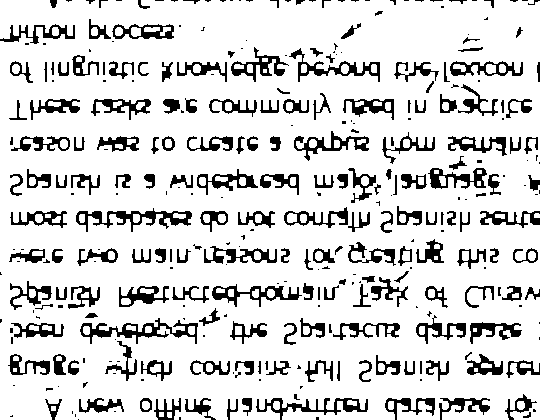 A new offline handwritten database fo
guage, which contains full Spanish senten
been developed: the Spartacus database
Spanish Restricted-domain Task of Cursiv
were two main reasons for creating this co
most databases do not contain Spanish sente
Spanish is a widespread major language. A
reason was to create a corpus from semanti
These tasks are commonly used in practice
of linguistic knowledge beyond the lexicon l
nition process.
As the Spartacus database